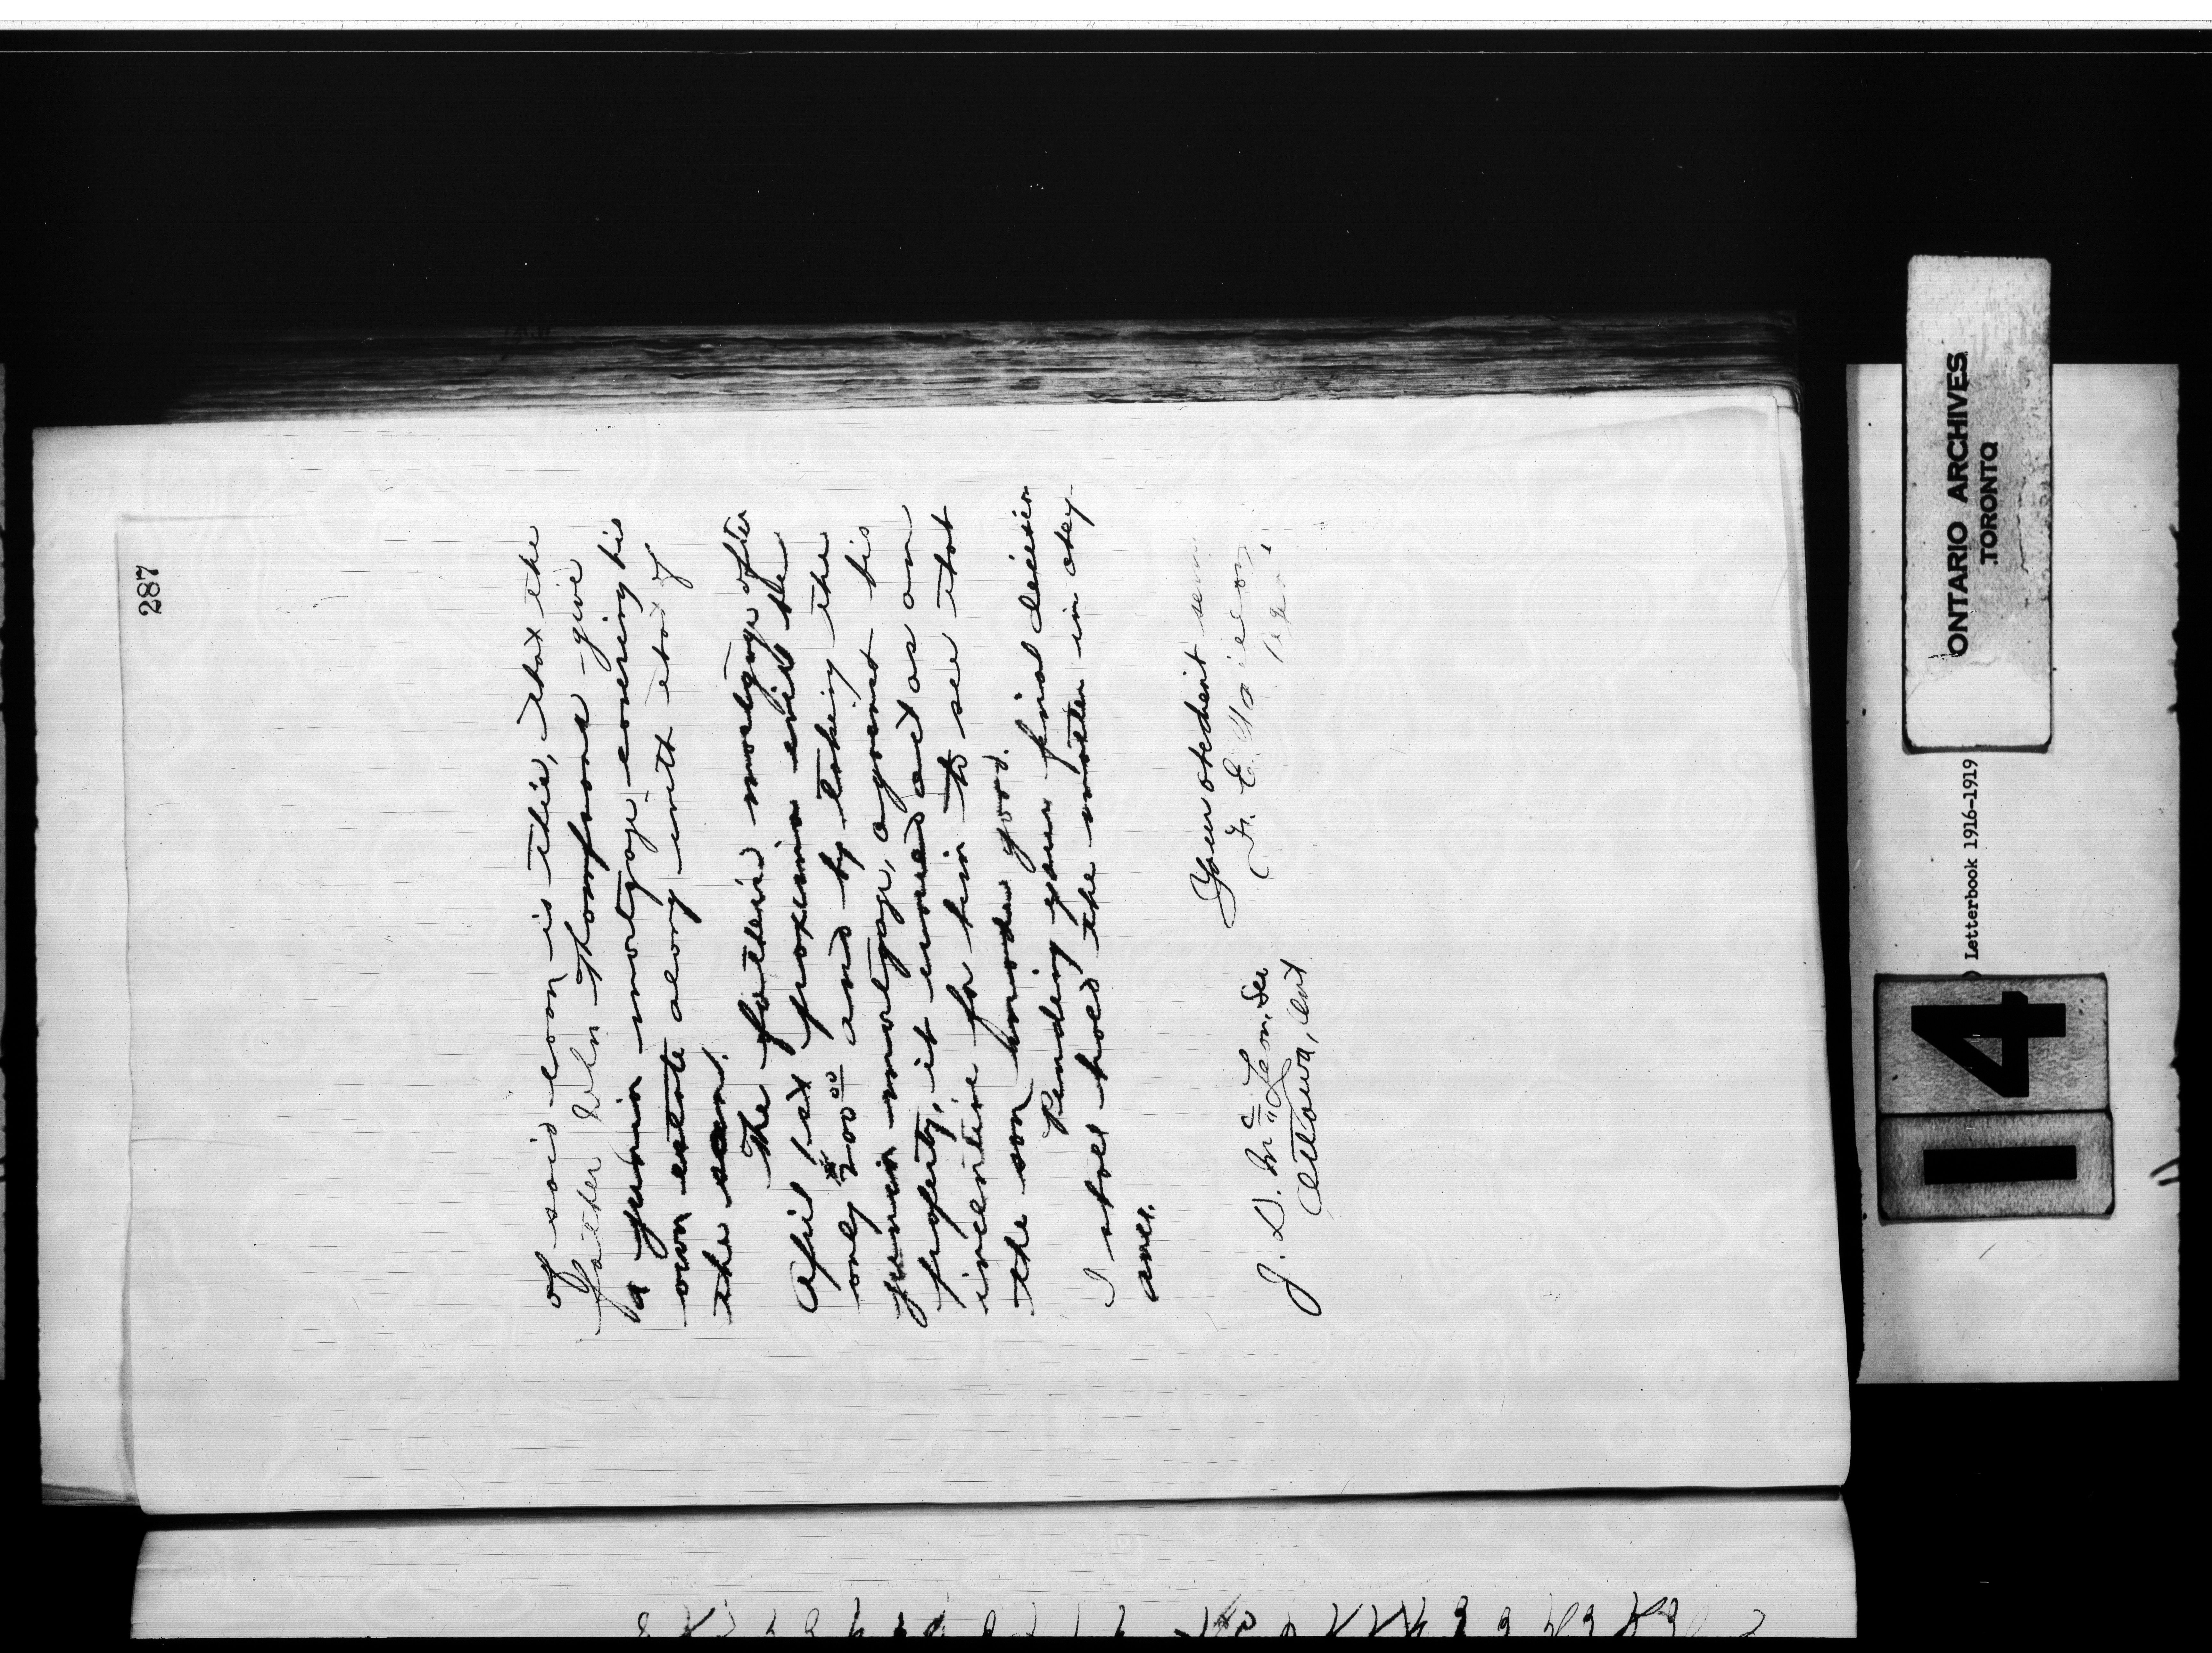 287
of said loan is this, that the
father John Thompson give
a junior mortgage covering his
own estate along with that of
the son.
The father's mortgage after
April 1st proximo will be
only $200.00 and by taking the
junior mortgage, against his
property, it would act as an
incentive for him to see that
the son made good.
Pending your final decision
I shall hold the matter in abey-
ance.
Your obedient
J. D. McLean, Sec
Ottawa, Ont
ONTARIO ARCHIVES
TORONTO
Letterbook 1916-1919
14